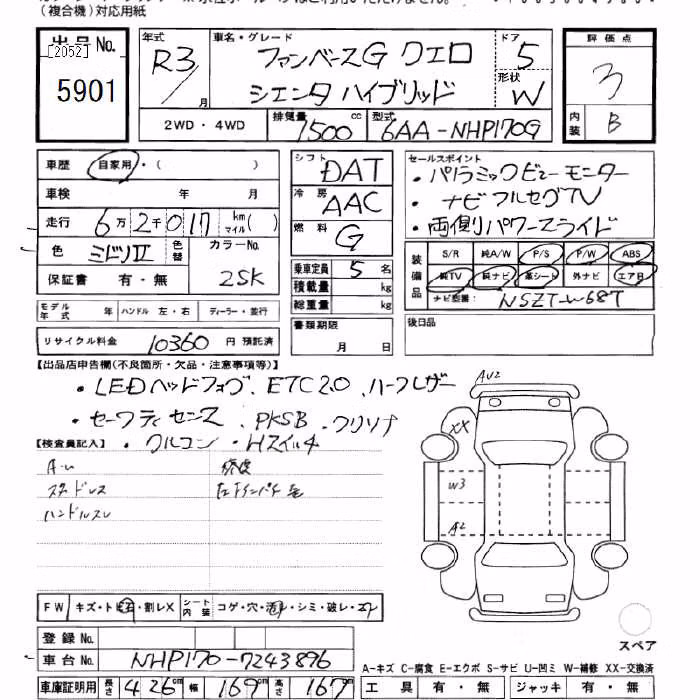 (複合機)対応用紙
出品No.
[2052]
5901
年式
R3
月
車名・グレード
ファンベースG クエロ
シエンタ ハイブリッド
ドア
5
形状
W
評価点
3
内装
B
2WD・4WD
排気量
1500
cc
型式
6AA-NHP170G
車歴
自家用・( )
車検 年 月
走行
6万2千017 km マイル( )
色
ミドリII
色替
カラーNo.
2SK
保証書 有・無
モデル年式 年 ハンドル 左・右 ディーラー・並行
リサイクル料金 10360 円 預託済
シフト
DAT
冷房
AAC
燃料
G
乗車定員 5 名
積載量 kg
総重量 kg
書類期限
月 日
セールスポイント
・パノラミックビューモニター
・ナビフルセグTV
・両側パワースライド
装備品
S/R 純A/W P/S P/W ABS
純TV 純ナビ 革シート 外ナビ エアB
ナビ型番: NSZT-W68T
後日品
【出品店申告欄(不良箇所・欠品・注意事項等)】
・LEDヘッドフォグ、ETC2.0、ハーフレザー
・セーフティセンス、PKSB、クリソナ
・クルコン・Hスイルキ
【検査員記入】
ハンドルスレ
AU2
XX
W3
A2
スペア
FW
キズ・トビ石・割レX
シート内装
コゲ・穴・汚れ・シミ・破レ・スレ
登録No.
車台No. NHP170-7243896
車庫証明用 長さ 426cm 幅 169cm 高さ 167cm
A-キズ C-腐食 E-エクボ S-サビ U-凹ミ W-補修 XX-交換済
工具 有・無 ジャッキ 有・無